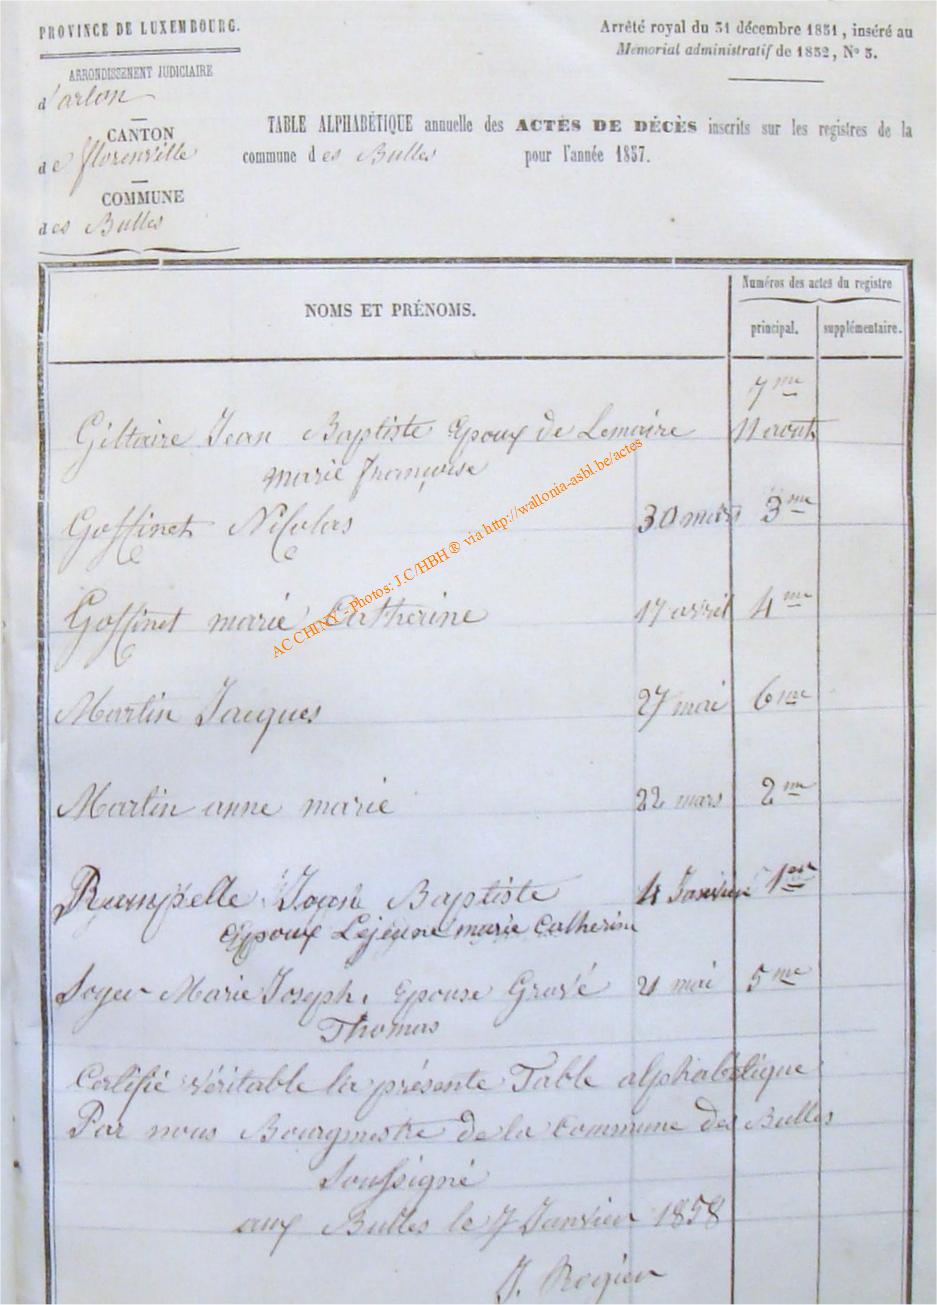 PROVINCE DE LUXEMBOURG.
ARRONDISSEMENT JUDICIAIRE
d'arlon
CANTON
de florenville
COMMUNE
des Bulles
Arrêté royal du 31 décembre 1851, inséré au
Mémorial administratif de 1852, N° 3.
TABLE ALPHABÉTIQUE annuelle des ACTES DE DÉCÈS inscrits sur les registres de la
commune des Bulles pour l'année 1857.
NOMS ET PRÉNOMS.
Numéros des actes du registre
principal. supplémentaire.
7me
Giltaire Jean Baptiste Epoux de Lemaire 11 aout
marie françoise
Goffinet Nicolas 30 mars 3me
Goffinet marie Catherine 17 avril 4me
Martin Jacques 27 mai 6me
Martin anne marie 22 mars 2me
Jean Baptiste 4 Janvier 1er
Epoux Lejeune marie Catherine
Soyer Marie Joseph. Epouse Gravé 21 mai 5me
Thomas
Certifié véritable la présente Table alphabétique
Par nous Bourgmestre de la commune des Bulles
Soussigné
aux Bulles le 7 Janvier 1858
J. Rogier
AC CHINY - Photos: J.C/HBH ® via http://wallonia-asbl.be/actes